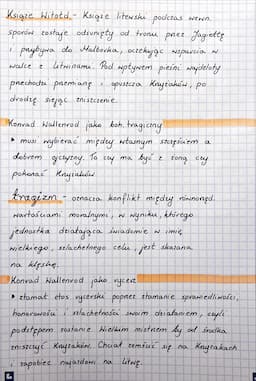 Książe Witold - Książe litewski podczas wewn.
sporów zostaje odsunięty od tronu przez Jagiełłę
i przybywa do Malborka, oczekując wsparcia w
walce z Litwinami. Pod wpływem pieśni wajdeloty
przechodzi przemianę i opuszcza Krzyżaków, po
drodze siejąc zniszczenie.
Konrad Wallenrod jako boh. tragiczny
• musi wybierać między własnym szczęściem a
dobrem ojczyzny. To czy ma być z żoną czy
pokonać Krzyżaków
tragizm - oznacza konflikt między równorzęd.
wartościami moralnymi, w wyniku, którego
jednostka działająca świadomie w imię
wielkiego, szlachetnego celu, jest skazana
na klęskę.
Konrad Wallenrod jako rycerz
• złamał etos rycerski poprzez złamanie sprawiedliwości,
honorowości i szlachetności swoim działaniem, czyli
podstępem zostanie Wielkim mistrzem by od środka
zniszczyć Krzyżaków. Chciał zemścić się na Krzyżakach
i zapobiec najazdowi na Litwę.